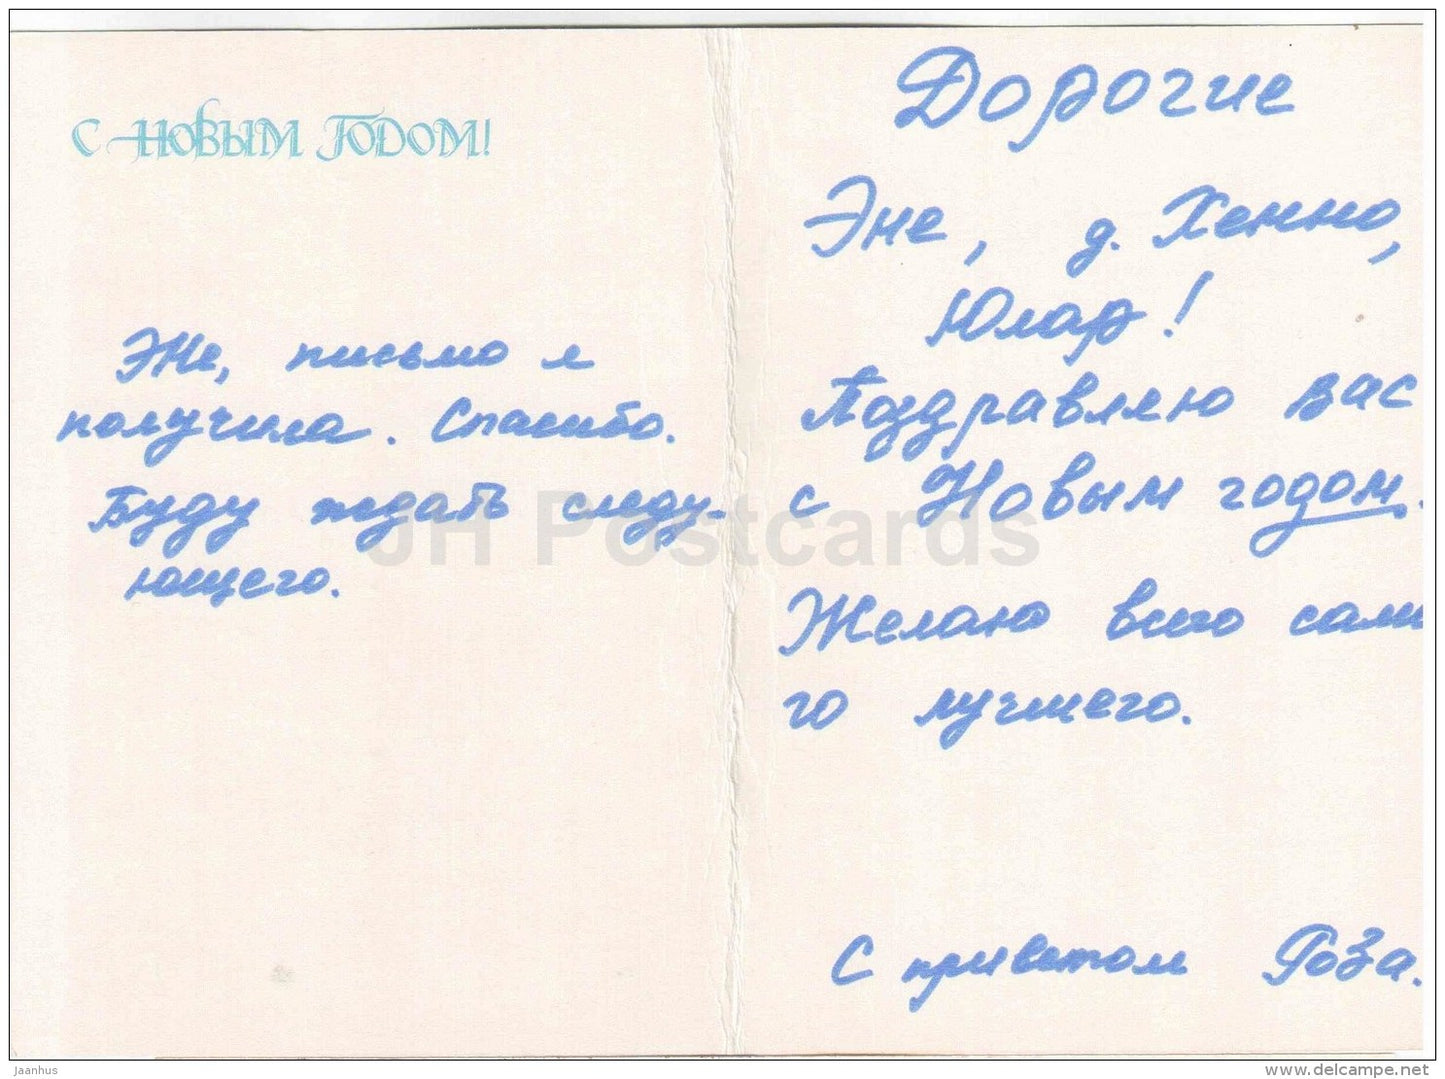 С НОВЫМ ГОДОМ!
Эне, письмо я
получила. Спасибо.
Буду ждать следу-
ющего.
Дорогие
Эне, д. Хенно,
Юлар!
Поздравляю вас
с Новым годом.
Желаю всего само
го лучшего.
С приветом Роза.
JH Postcards
jaanhus
delcampe.net